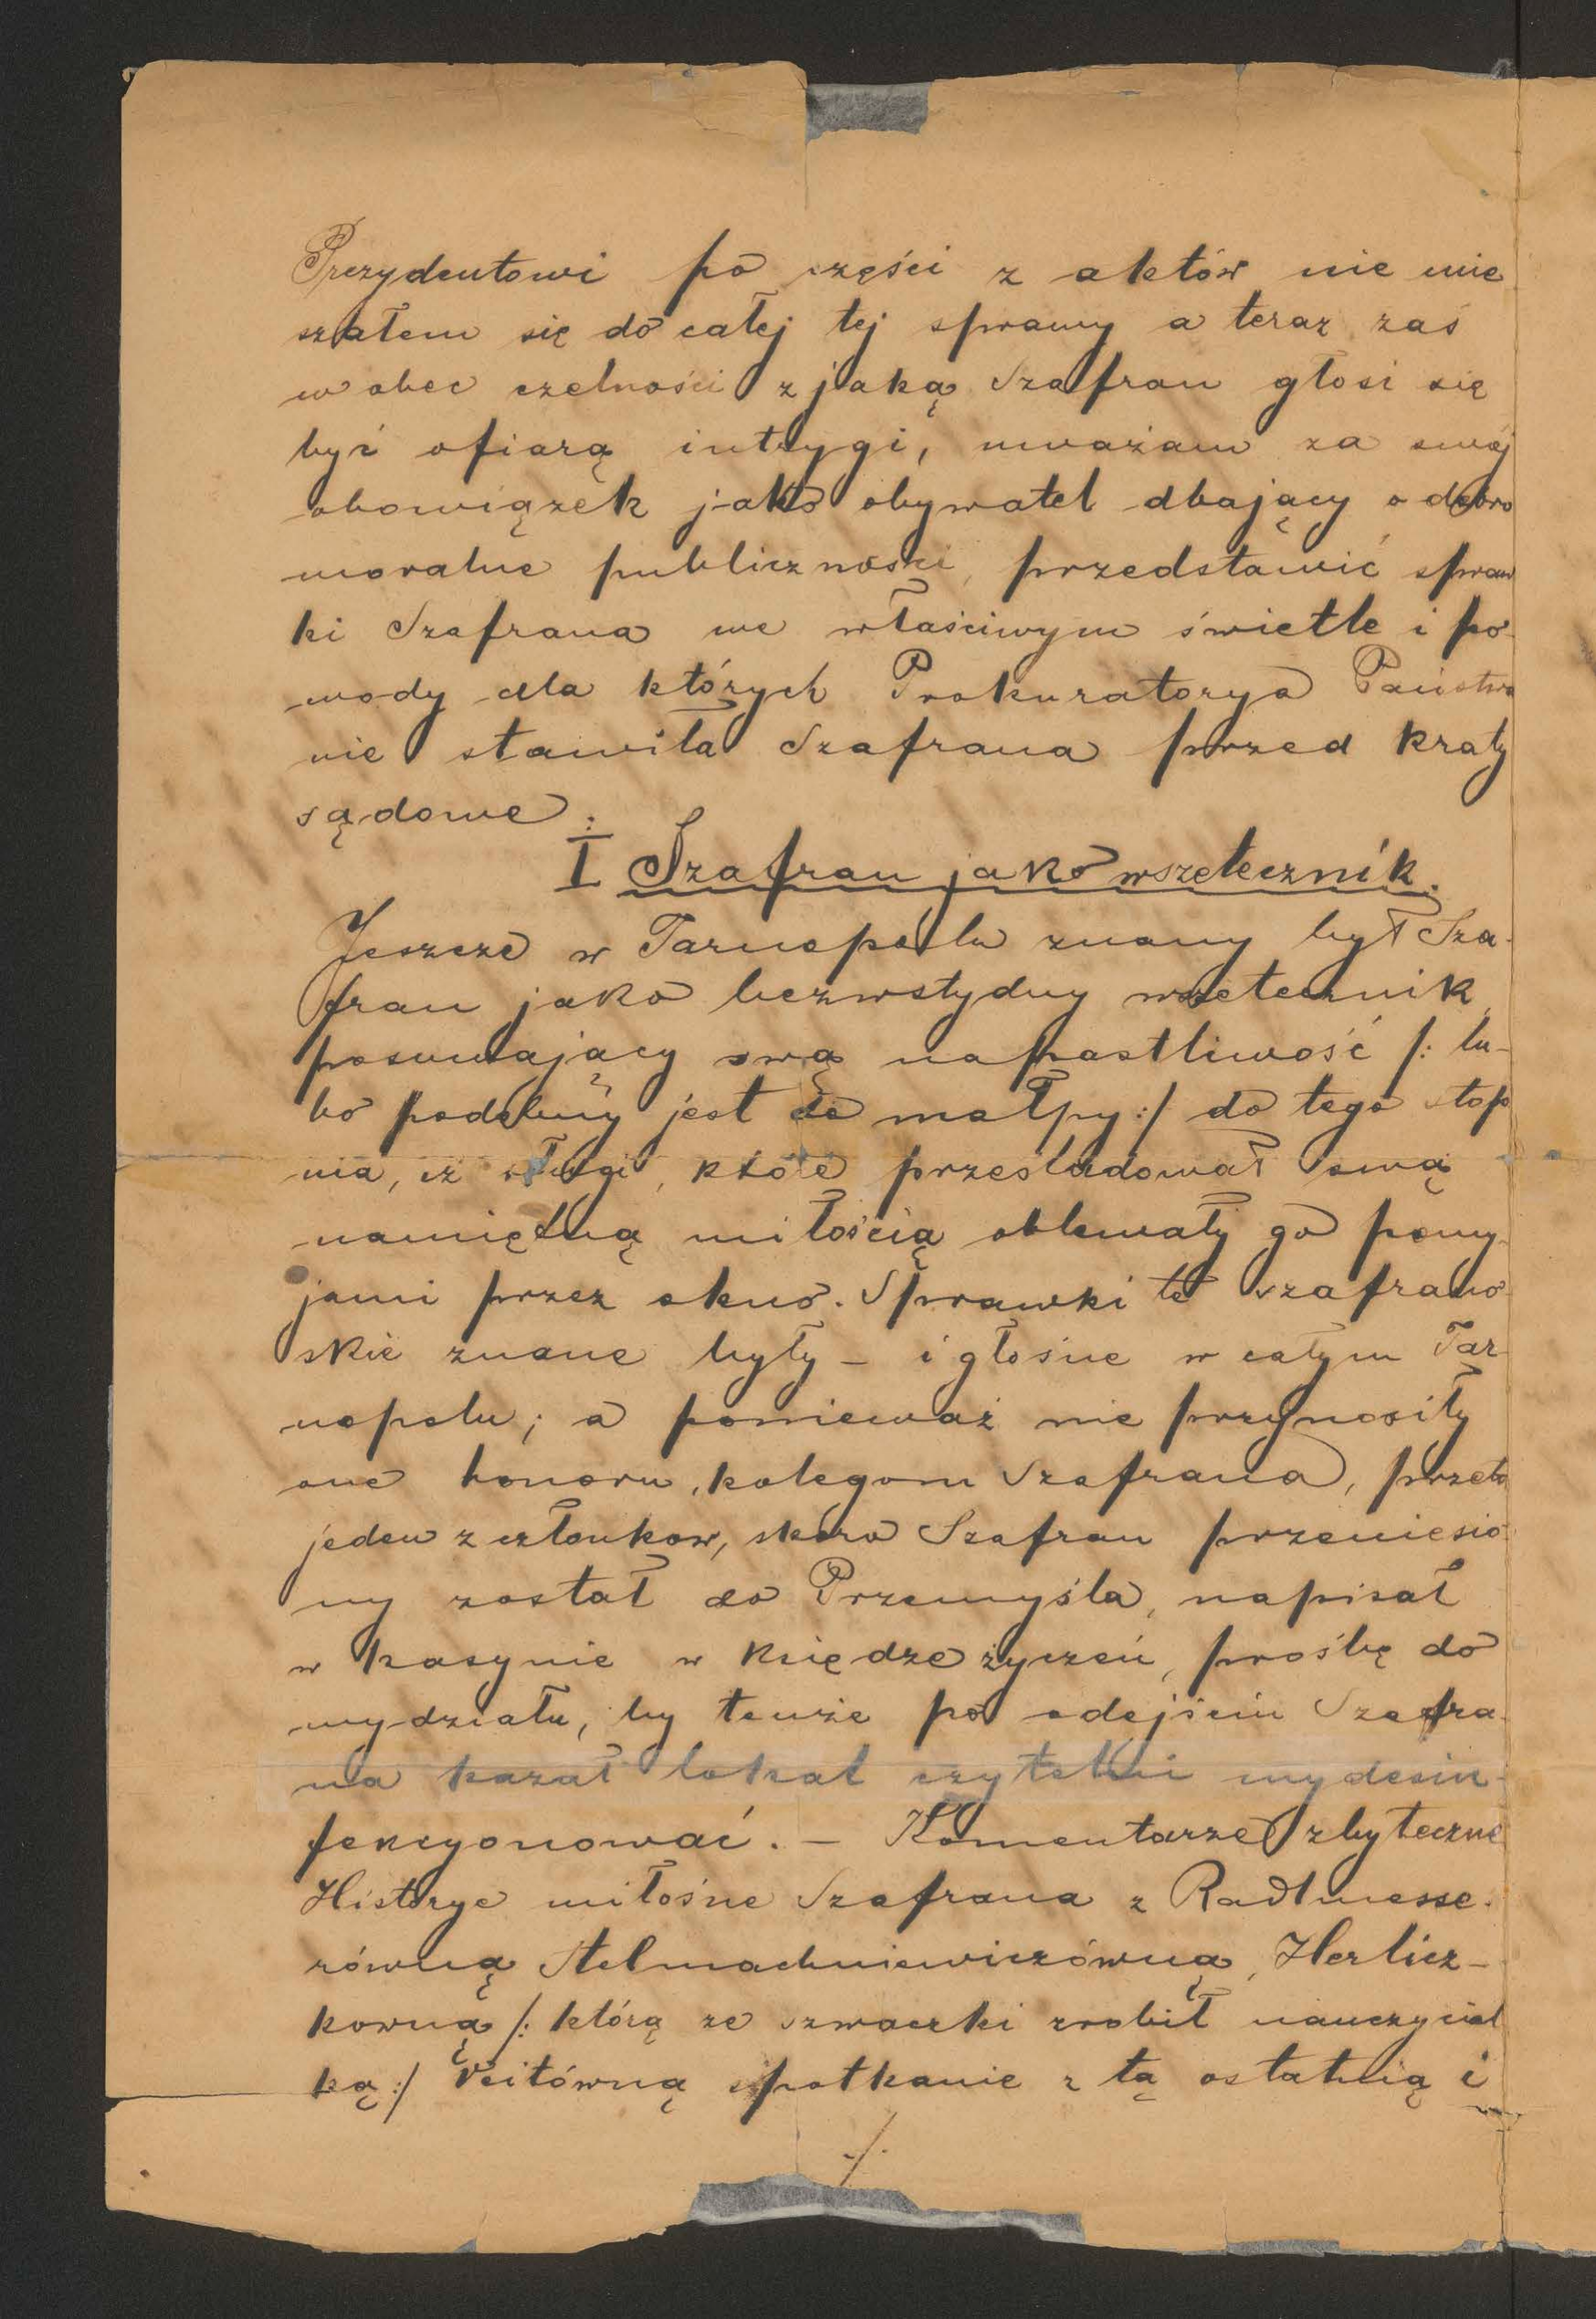 Prezydentowi po części z aktów nie mie
szałem się do całej tej sprawy a teraz zaś
w obec czelności z jaką Szafran głosi się
być ofiarą intrygi, uważam za swój
obowiązek jako obywatel dbający o dobro
moralne publiczności, przedstawić spraw
ki Szafrana we właściwym świetle i po-
wody dla których Prokuratorya Państwa
nie stawiła Szafrana przed kraty
sądowe:
I Szafran jako wszetecznik.
Jeszcze w Tarnopolu znany był Sza-
fran jako bezwstydny wszetecznik,
posuwający swą napastliwość /: lu-
bo podobny jest do małpy :/ do tego stop
nia, iż sługi, które prześladował swą
namiętną miłością oblewały go pomy-
jami przez okno. Sprawki te szafrano
skie znane były – i głośne w całym Tar-
nopolu; a ponieważ nie przynosiły
one honoru, kolegom Szafrana, przeto
jeden z członkow, skoro Szafran przeniesio-
ny został do Przemyśla, napisał
w kasynie w księdze życzeń, prośbę do
wydziału, by tenże po odejściu Szafra-
na kazał lokal czytelni wydesin-
fekcyonować. – Komentarze zbyteczne
Historye miłosne Szafrana z Radlmesse-
równą Stelmachniewiczówną, Herlicz-
kowną /: którą ze szwaczki zrobił nauczyciel
ką :/ Veitówną spotkanie z tą ostatnią i
./.